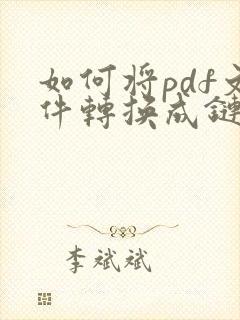 如何将pdf文
件轉換成鏈
李斌斌